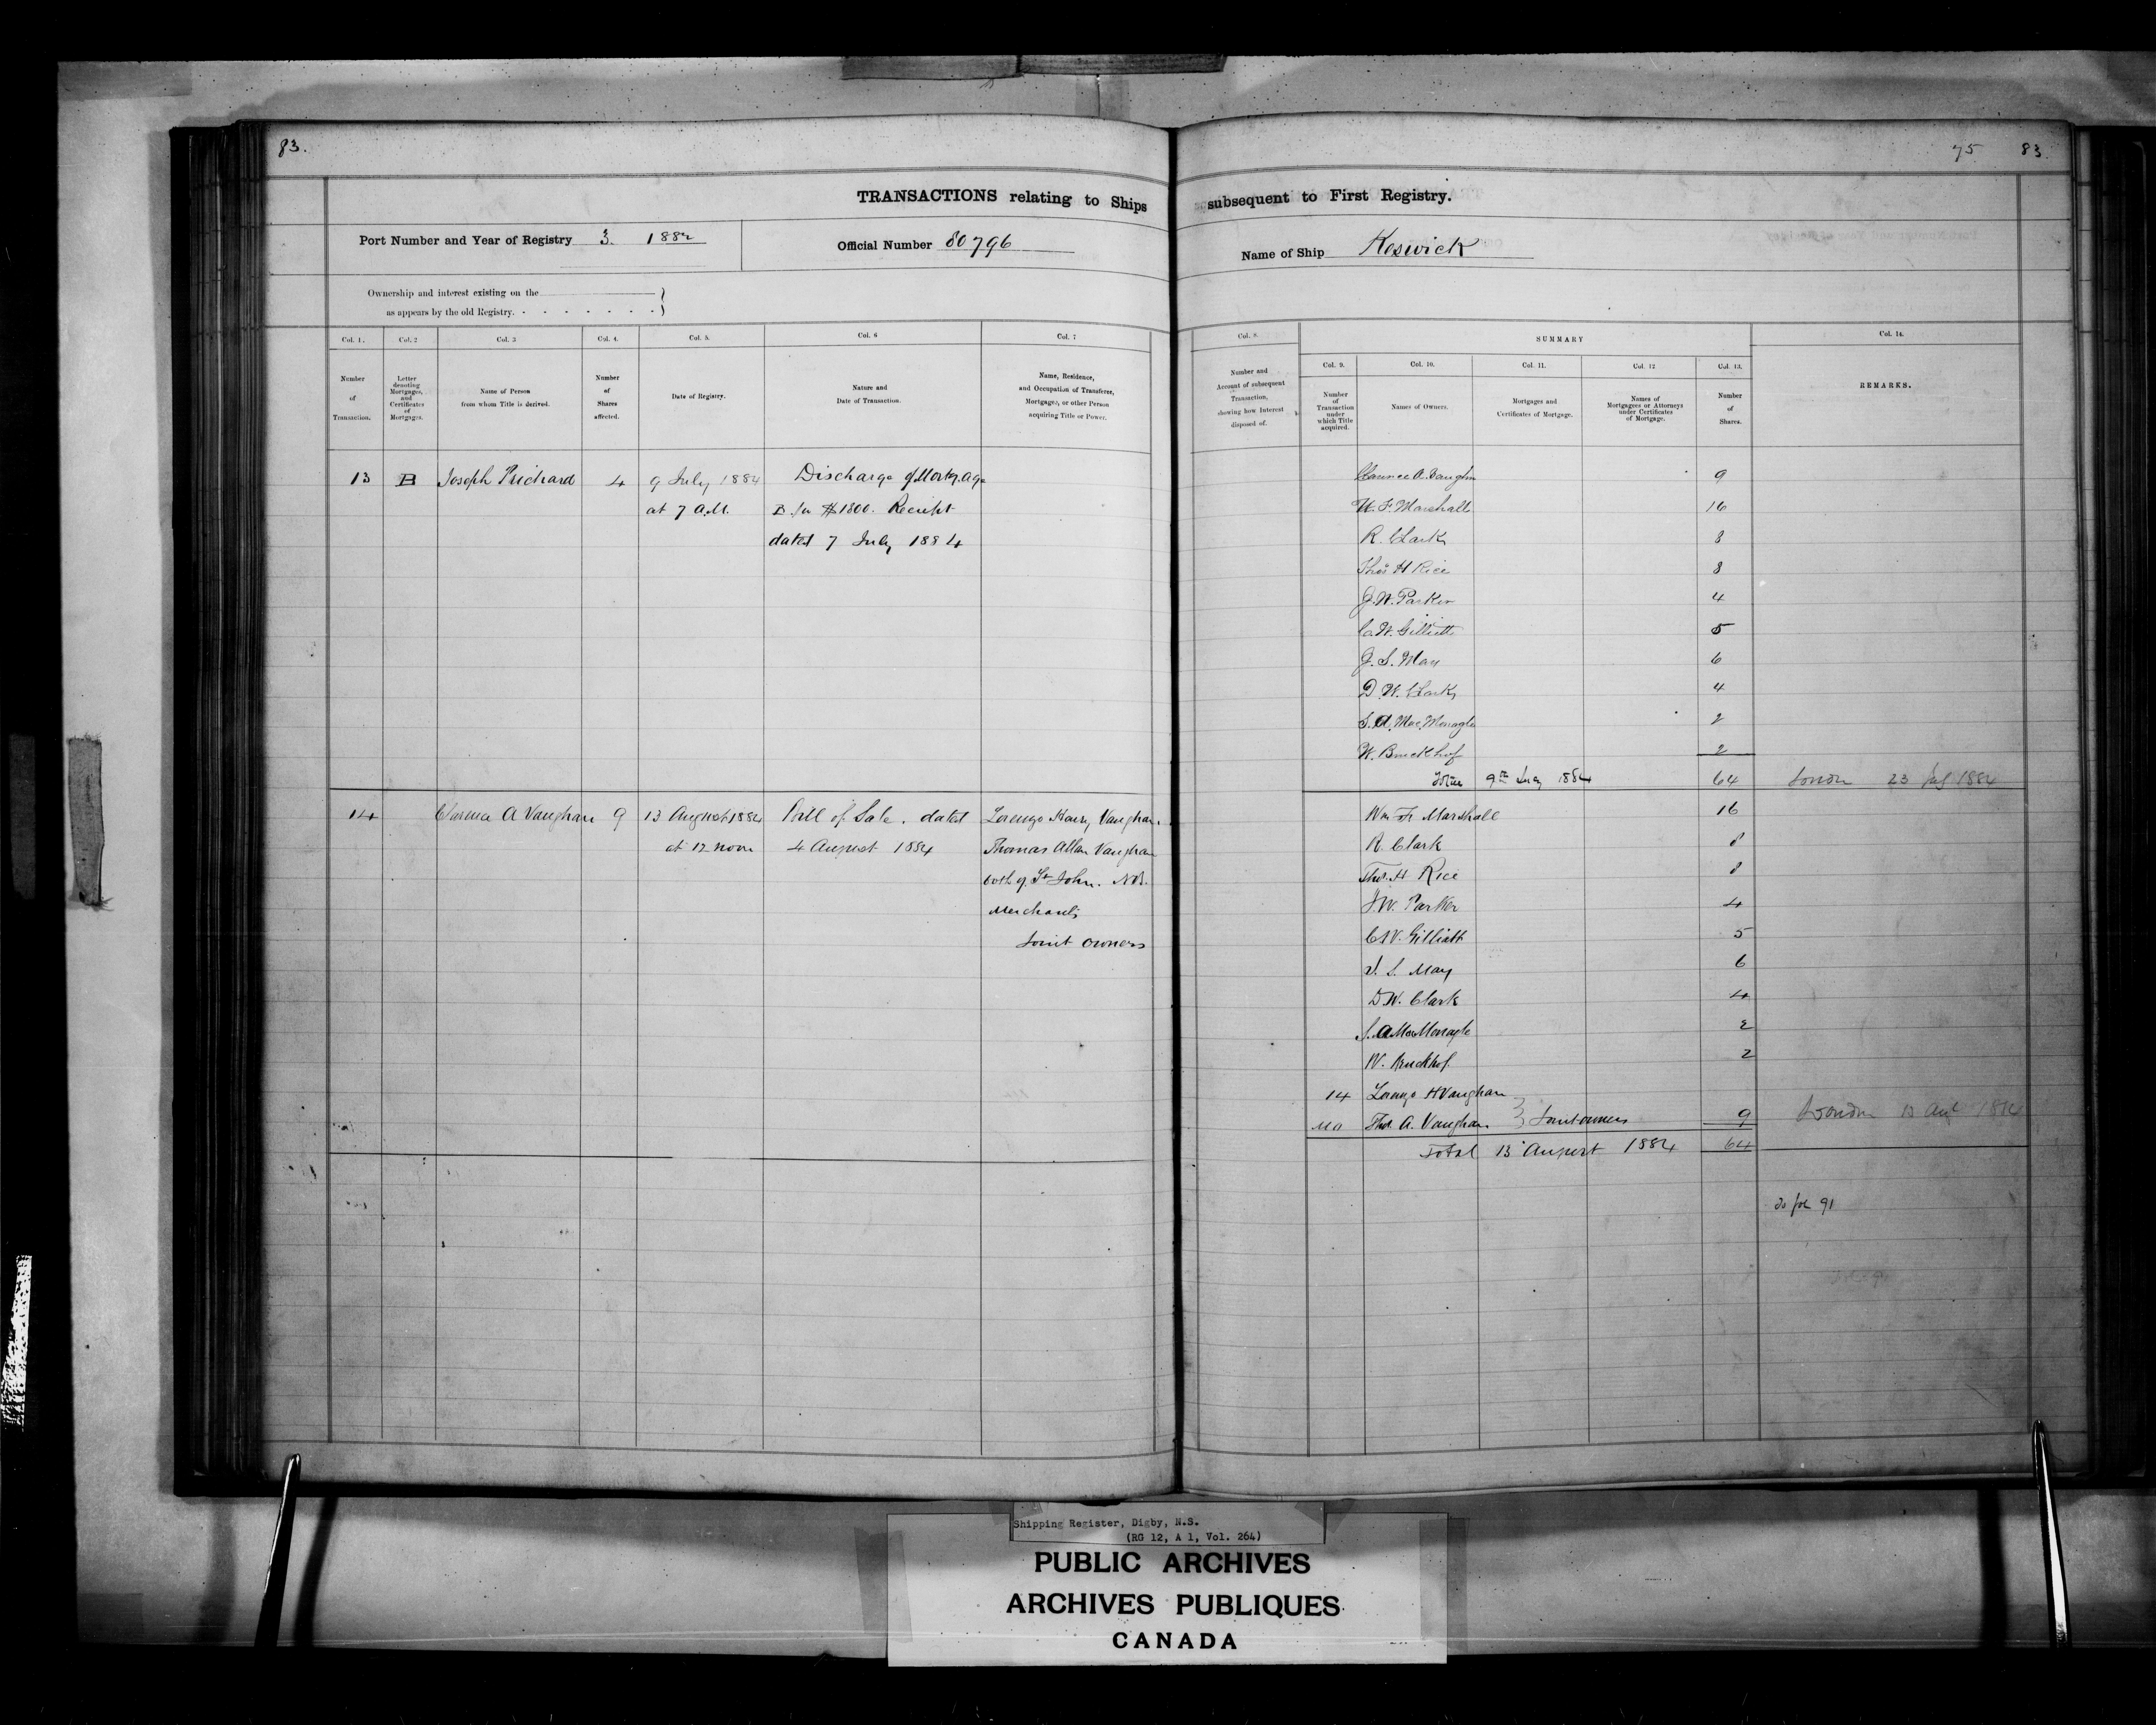 83.
75 83
TRANSACTIONS relating to Ships subsequent to First Registry.
Port Number and Year of Registry 3. 1882
Official Number 80796
Name of Ship Keswick
Ownership and interest existing on the
as appears by the old Registry.
Col. 1.
Number
of
Transaction.
Col. 2
Letter
denoting
Mortgages,
and
Certificates
of
Mortgages.
Col. 3
Name of Person
from whom Title is derived.
Col. 4.
Number
of
Shares
affected.
Col. 5.
Date of Registry.
Col. 6
Nature and
Date of Transaction.
Col. 7
Name, Residence,
and Occupation of Transferee,
Mortgagee, or other Person
acquiring Title or Power.
Col. 8.
Number and
Account of subsequent
Transaction,
showing how Interest
disposed of.
SUMMARY
Col. 9.
Number
of
Transaction
under
which Title
acquired.
Col. 10.
Names of Owners.
Col. 11.
Mortgages and
Certificates of Mortgage.
Col. 12
Names of
Mortgagees or Attorneys
under Certificates
of Mortgage.
Col. 13.
Number
of
Shares.
Col. 14.
REMARKS.
13 B Joseph Prichard 4 9 July 1884 Discharge of Mortgage
at 7 A.M. B for $1800. Receipt
dated 7 July 1884
Clarence A. Vaughn 9
W. F. Marshall 16
R. Clark 8
Thos H Rice 8
J. W. Parker 4
C. W. Gilliatt 5
J. S. May 6
D. W. Clark 4
S. A. MacMonagle 2
W. Bruckhof 2
Total 9th July 1884 64 London 23 July 1884
14 Clarence A Vaughan 9 13 August 1884 Bill of Sale. dated Lorenzo Henry Vaughan.
at 12 noon 4 August 1884 Thomas Allan Vaughan
both of St John. N.B.
Merchants
Joint owners
Wm F. Marshall 16
R. Clark 8
Thos. H Rice 8
J. W. Parker 4
C W. Gilliatt 5
J. S. May 6
D. W. Clark 4
S. A MacMonagle 2
W. Bruckhof. 2
14 Lorenzo H Vaughan
Thos. A. Vaughan } Joint owners 9 London 13 Aug 1884
Total 13 August 1884 64
To fol 91
Shipping Register, Digby, N.S.
(RG 12, A 1, Vol. 264)
PUBLIC ARCHIVES
ARCHIVES PUBLIQUES
CANADA